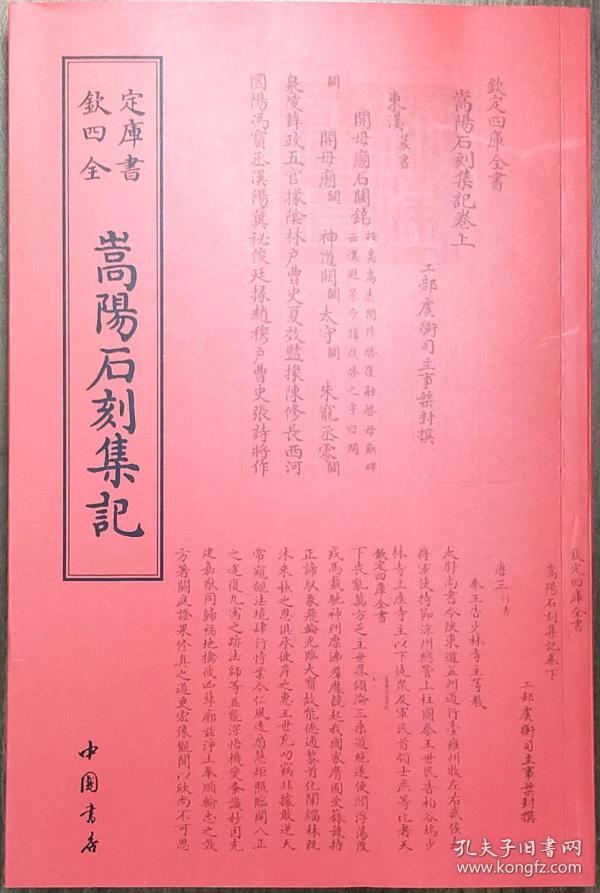 欽定四庫全書
嵩陽石刻集記
中國書店
欽定四庫全書
嵩陽石刻集記卷上
工部虞衡司主事葉封撰
東漢 篆書
開母廟石闕銘
開母廟闕 神道闕闕太守闕 朱寵丞零闕
泉陵薛政五官掾陰林户曹史夏效監掾陳修長西河
圜陽馮寶丞漢陽冀祕俊廷掾趙穆户曹史張詩將作
欽定四庫全書
嵩陽石刻集記卷下
工部虞衡司主事葉封撰
唐三 行書
秦王告少林寺主等教
太尉尚書令陜東道益州道行臺雍州牧左右武候大
將軍使持節涼州總管上柱國秦王世民告柏谷塢少
林寺上座寺主以下徒衆及軍民首領士庶等比者天
欽定四庫全書
下喪亂萬方乏主世界傾淪三乘道絶遂使閻浮蕩覆
戎馬載馳神州糜沸羣魔競起我國家膺圖受籙護持
正諦馭象飛輪光臨大寶故能德通黎首化闡緇林既
沐來穌之恩俱承彼岸之惠王世充叨竊非據敢逆天
常窺覦法境肆行悖業今仁風遠扇慧炬照臨開八正
之途復九㝢之跡法師等並能深悟機變蚤識妙因克
建嘉猷同歸福地擒彼凶孽廓兹淨土奉順輸忠之效
方著闕庭證果修真之道更宏像觀聞以欣尚不可思
孔夫子旧书网
www.kongfz.com